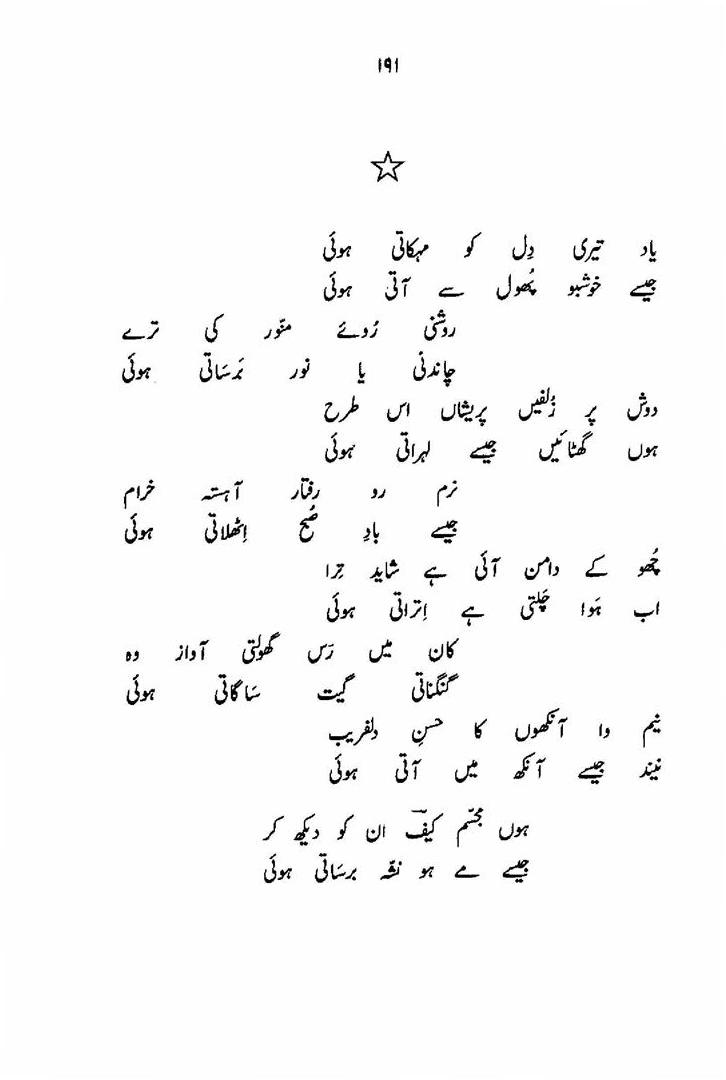 ۱۹۱
یاد تیری دِل کو مہکاتی ہوئی
جیسے خوشبو پھُول سے آتی ہوئی
روشنی رُوئے منّور کی ترے
چاندنی یا نور بَرسَاتی ہوئی
دوش پر زُلفیں پریشاں اس طرح
ہوں گھٹائیں جیسے لہراتی ہوئی
نرم رو رفتار آہستہ خرام
جیسے بادِ صُبح اِٹھلاتی ہوئی
چُھو کے دامن آئی ہے شاید تِرا
اب ہَوا چَلتی ہے اِتراتی ہوئی
کان میں رَس گھولتی آواز وہ
گنگناتی گیت سَا گاتی ہوئی
نیم وا آنکھوں کا حسنِ دلفریب
نیند جیسے آنکھ میں آتی ہوئی
ہوں مجسّم کیفؔ ان کو دیکھ کر
جیسے مے ہو نشّہ برسَاتی ہوئی